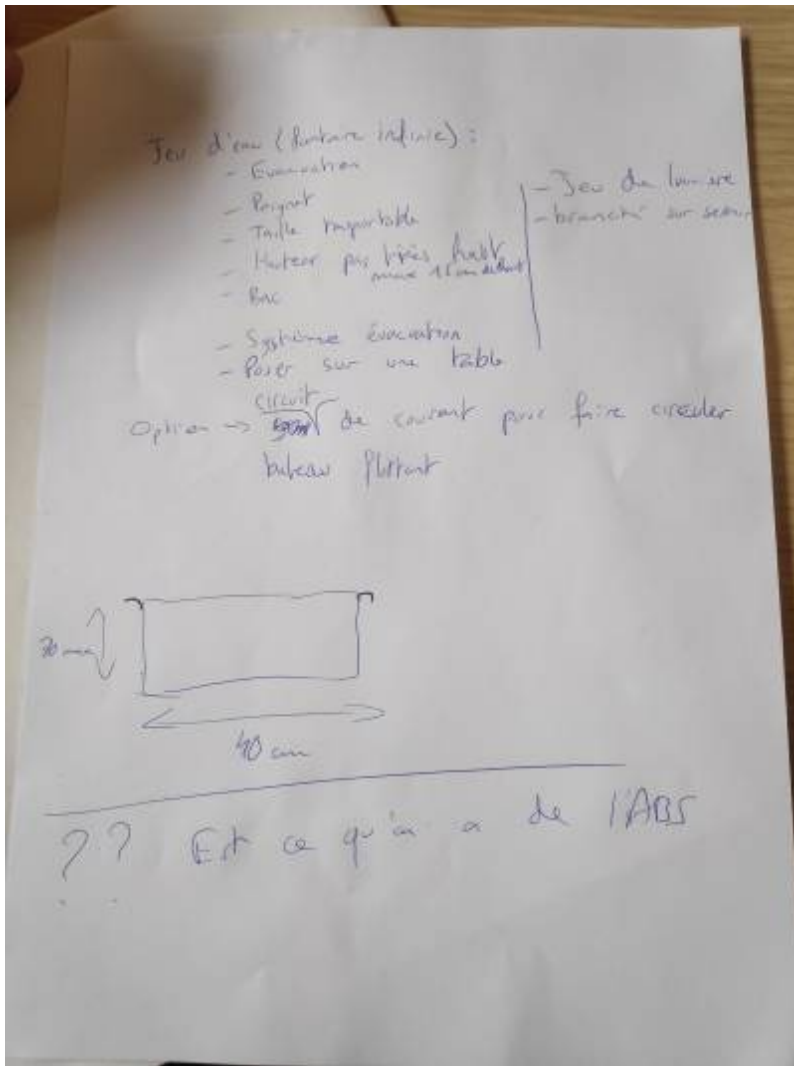 Jeu d'eau (fontaine infinie) :
- Evacuation
- Poignet
- Taille trasportable
- Hauteur pas très haut
max 15 cm
- Bac
- Système évacuation
- Poser sur une table
- Jeu de lumière
- branché sur
circuit
Option → de courant pour faire circuler
bateau flottant
40 cm
?? Est ce qu'on a de l'ABS